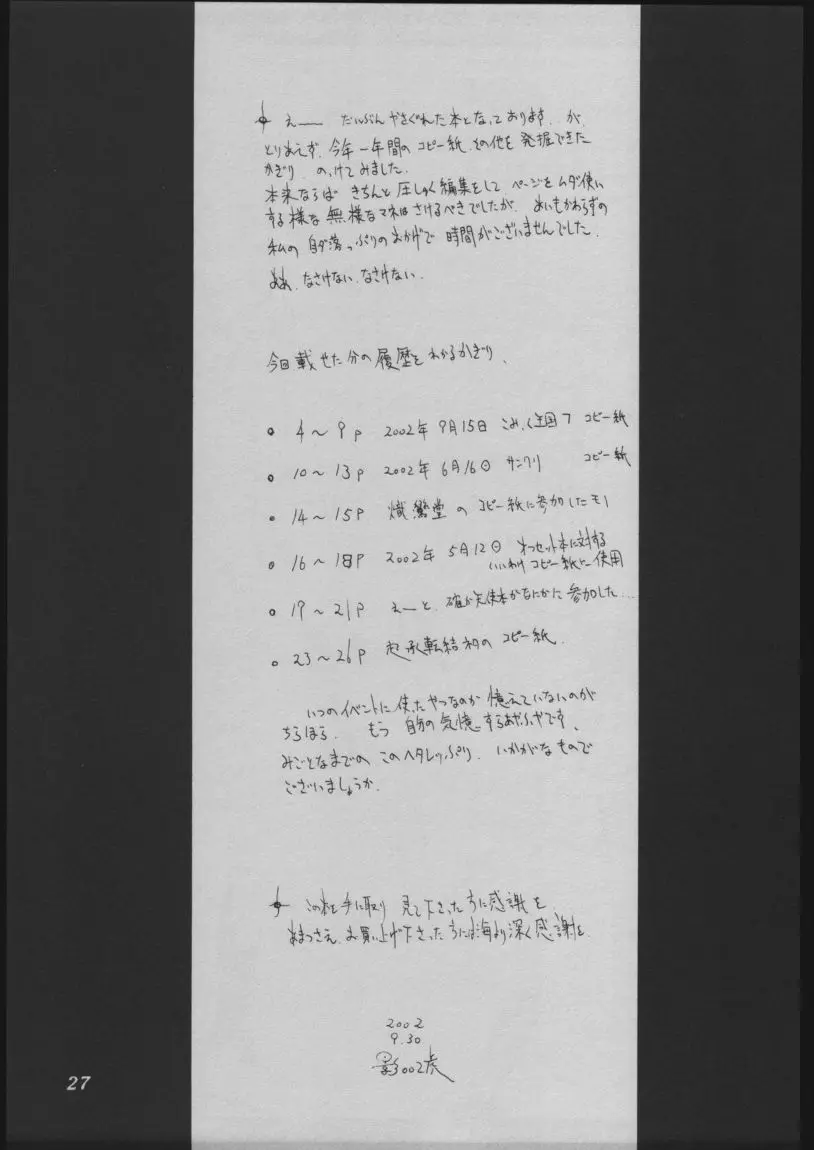 えー だいぶんやさぐれた本となっております.が、
とりあえず.今年一年間のコピー紙.その他を発掘できた
かぎり のっけてみました.
本来ならば きちんと圧しゅく編集をして ページをムダ使い
する様な無様なマネはさけるべきでしたが、あいもかわらずの
私の自ダ落っぷりのおかげで 時間がございませんでした.
ああ.なさけない.なさけない.
今回載せた分の履歴を わかるかぎり、
• 4〜9p 2002年9月15日 こみっく コピー紙
• 10〜13p 2002年6月16日 サンクリ コピー紙
• 14〜15p 熾鸞堂の コピー紙に参加したモノ
• 16〜18P 2002年5月12日 オフセット本に対する
いいわけ コピー紙に使用
• 19〜21P えーと、確か天使本かなにかに参加した...
• 23〜26p 起承転結 のコピー紙.
いつのイベントに使ったやつなのか憶えていないのが
ちらほら. もう 自分の気憶 するあやふやです、
みごとなまでの このヘタレっぷり. いかがなもので
ございましょうか.
この本を手に取り 見て下さった方に感謝を
あまつさえ、お買い上げ下さった方には海より深く感謝を
2002
9.30
影002虎
27